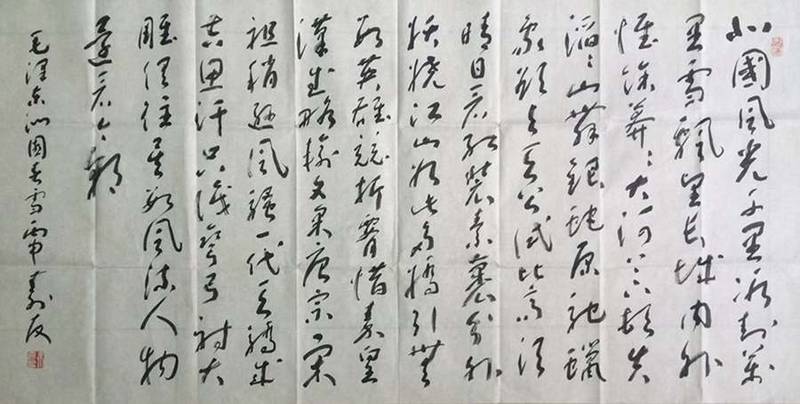 北國風光千里冰封萬
里雪飄望長城内外
惟餘莽〻大河上下頓失
滔〻山舞銀蛇原馳蠟
象欲與天公試比高須
晴日看紅裝素裹分外
妖嬈江山如此多嬌引無
數英雄競折腰惜秦皇
漢武略輸文采唐宗宋
祖稍遜風騷一代天驕成
吉思汗只識彎弓射大
雕俱往矣數風流人物
還看今朝
毛澤東沁園春雪